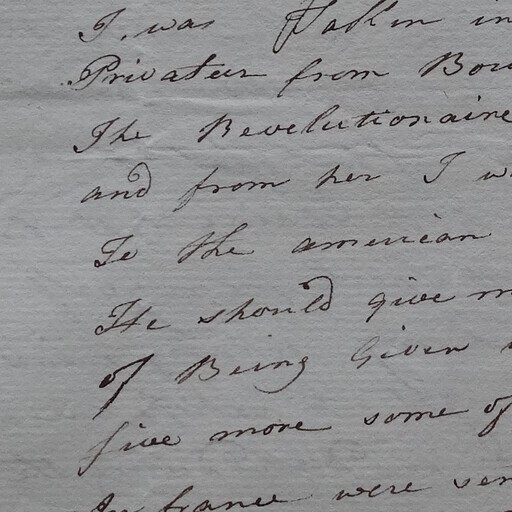 I was Taken in
Privateer from Bou
The Revelutionaire
and from her I w
To the american
He should give m
of Being Given
five more some of
In france were sen